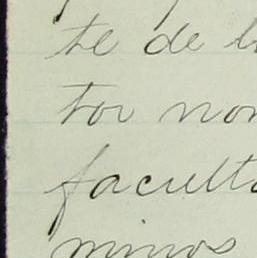 te de l
tor nom
faculta
minos